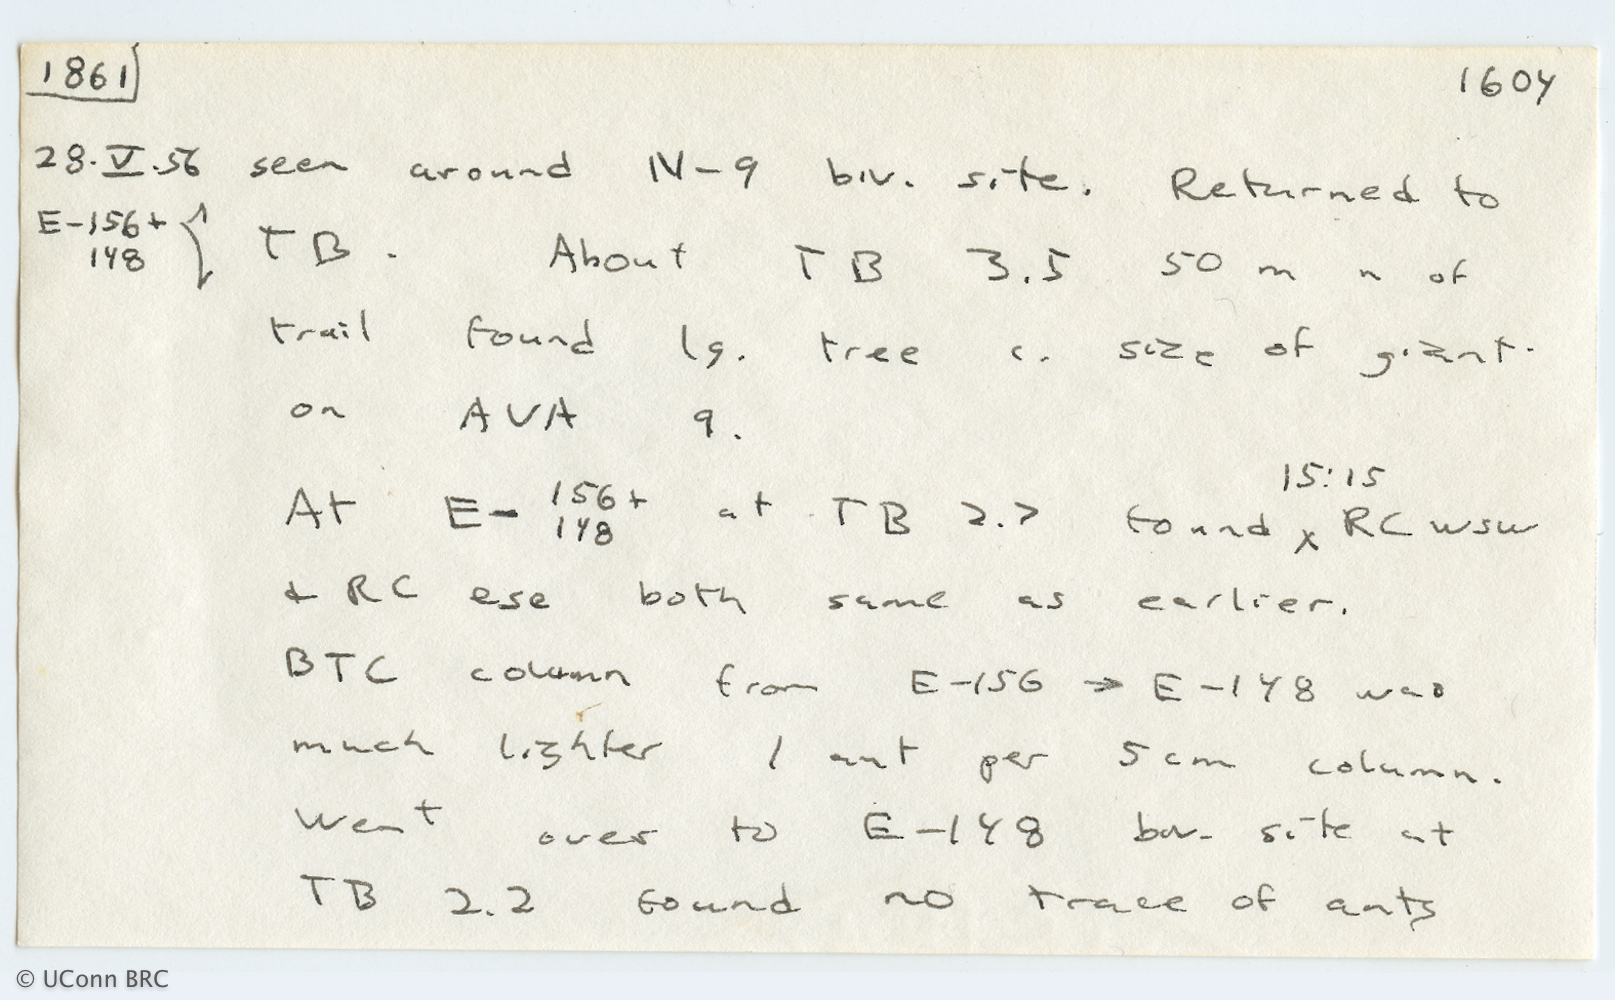 1861
1604
28.V.56 seen around N-9 biv. site. Returned to
E-156+
148
TB. About TB 3.5 50 m n of
trail found lg. tree c. size of giant.
on AVA 9.
15:15
At E-156+ at TB 2.7 found x RC wsw
148
& RC ese both same as earlier.
BTC column from E-156 → E-148 was
much lighter 1 ant per 5 cm column.
Went over to E-148 biv. site at
TB 2.2 found no trace of ants
© UConn BRC